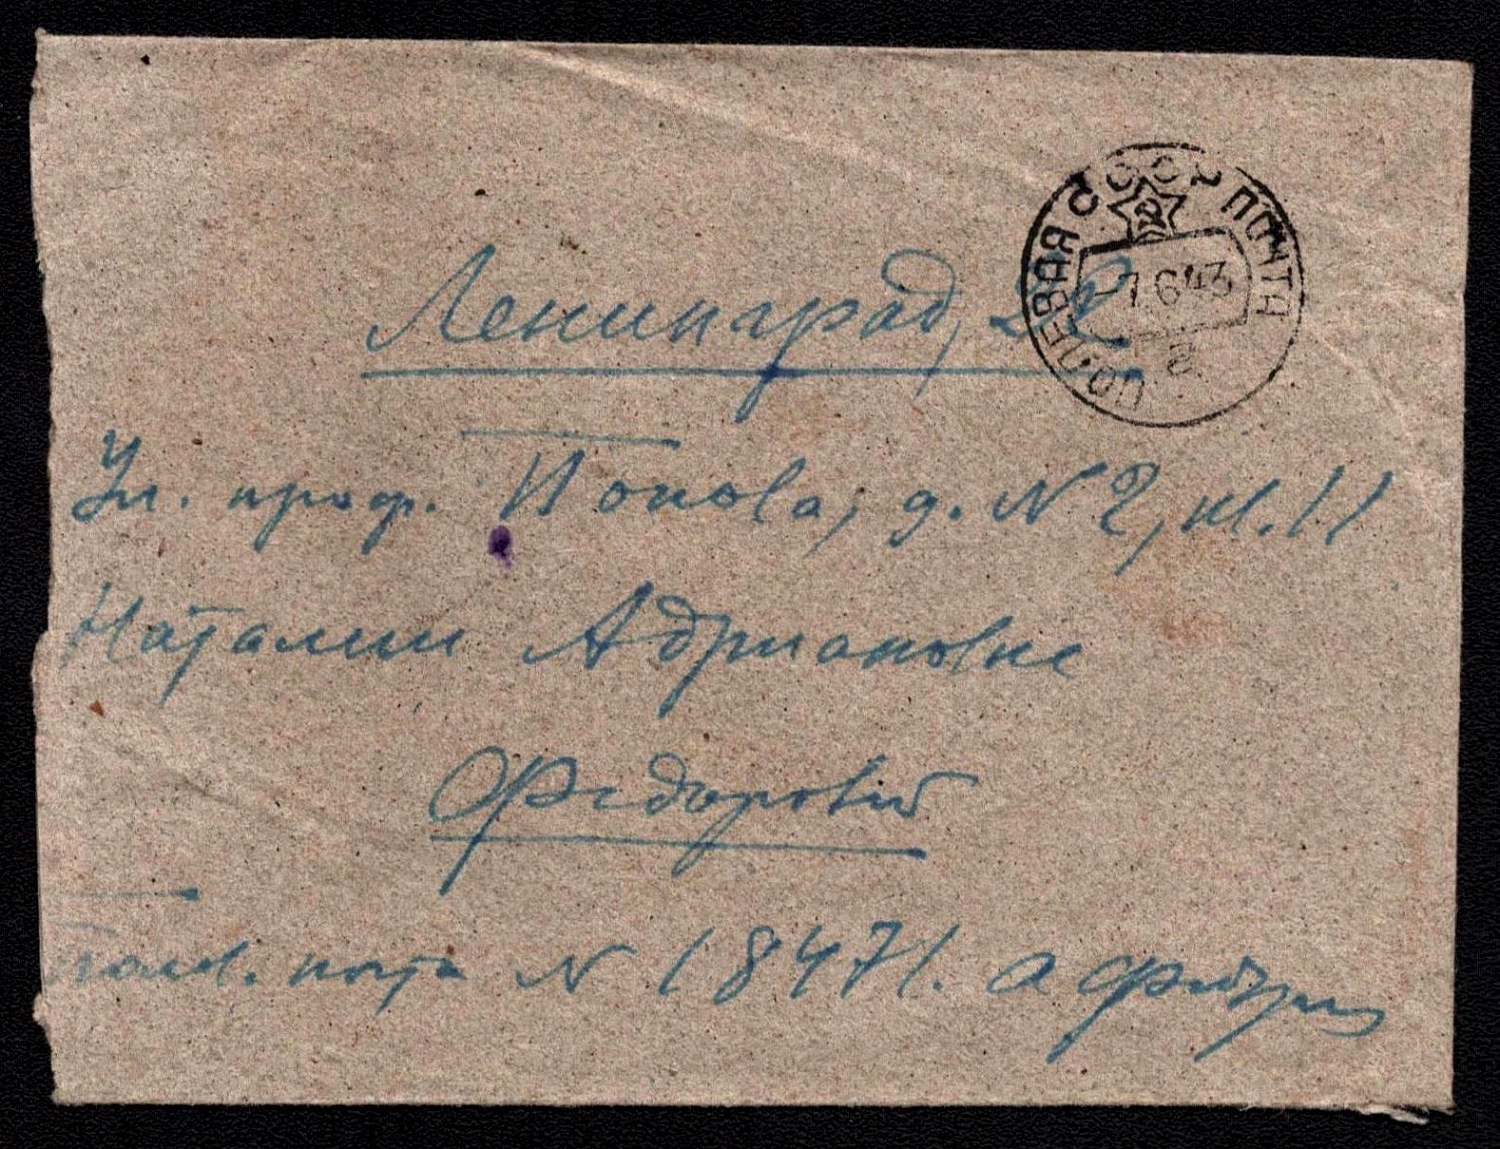 СССР ПОЛЕВАЯ ПОЧТА
-7.6.43
а
Ленинград, 22
Ул. проф. Попова, д. № 2, кв. 11
Наталии Адриановне
Федоровой
Полев. почта № 18471.